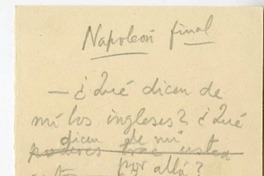 Napoleón final
— ¿Qué dicen de
mí los ingleses? ¿Qué
dicen de mí
poderes trae usted
por allá?